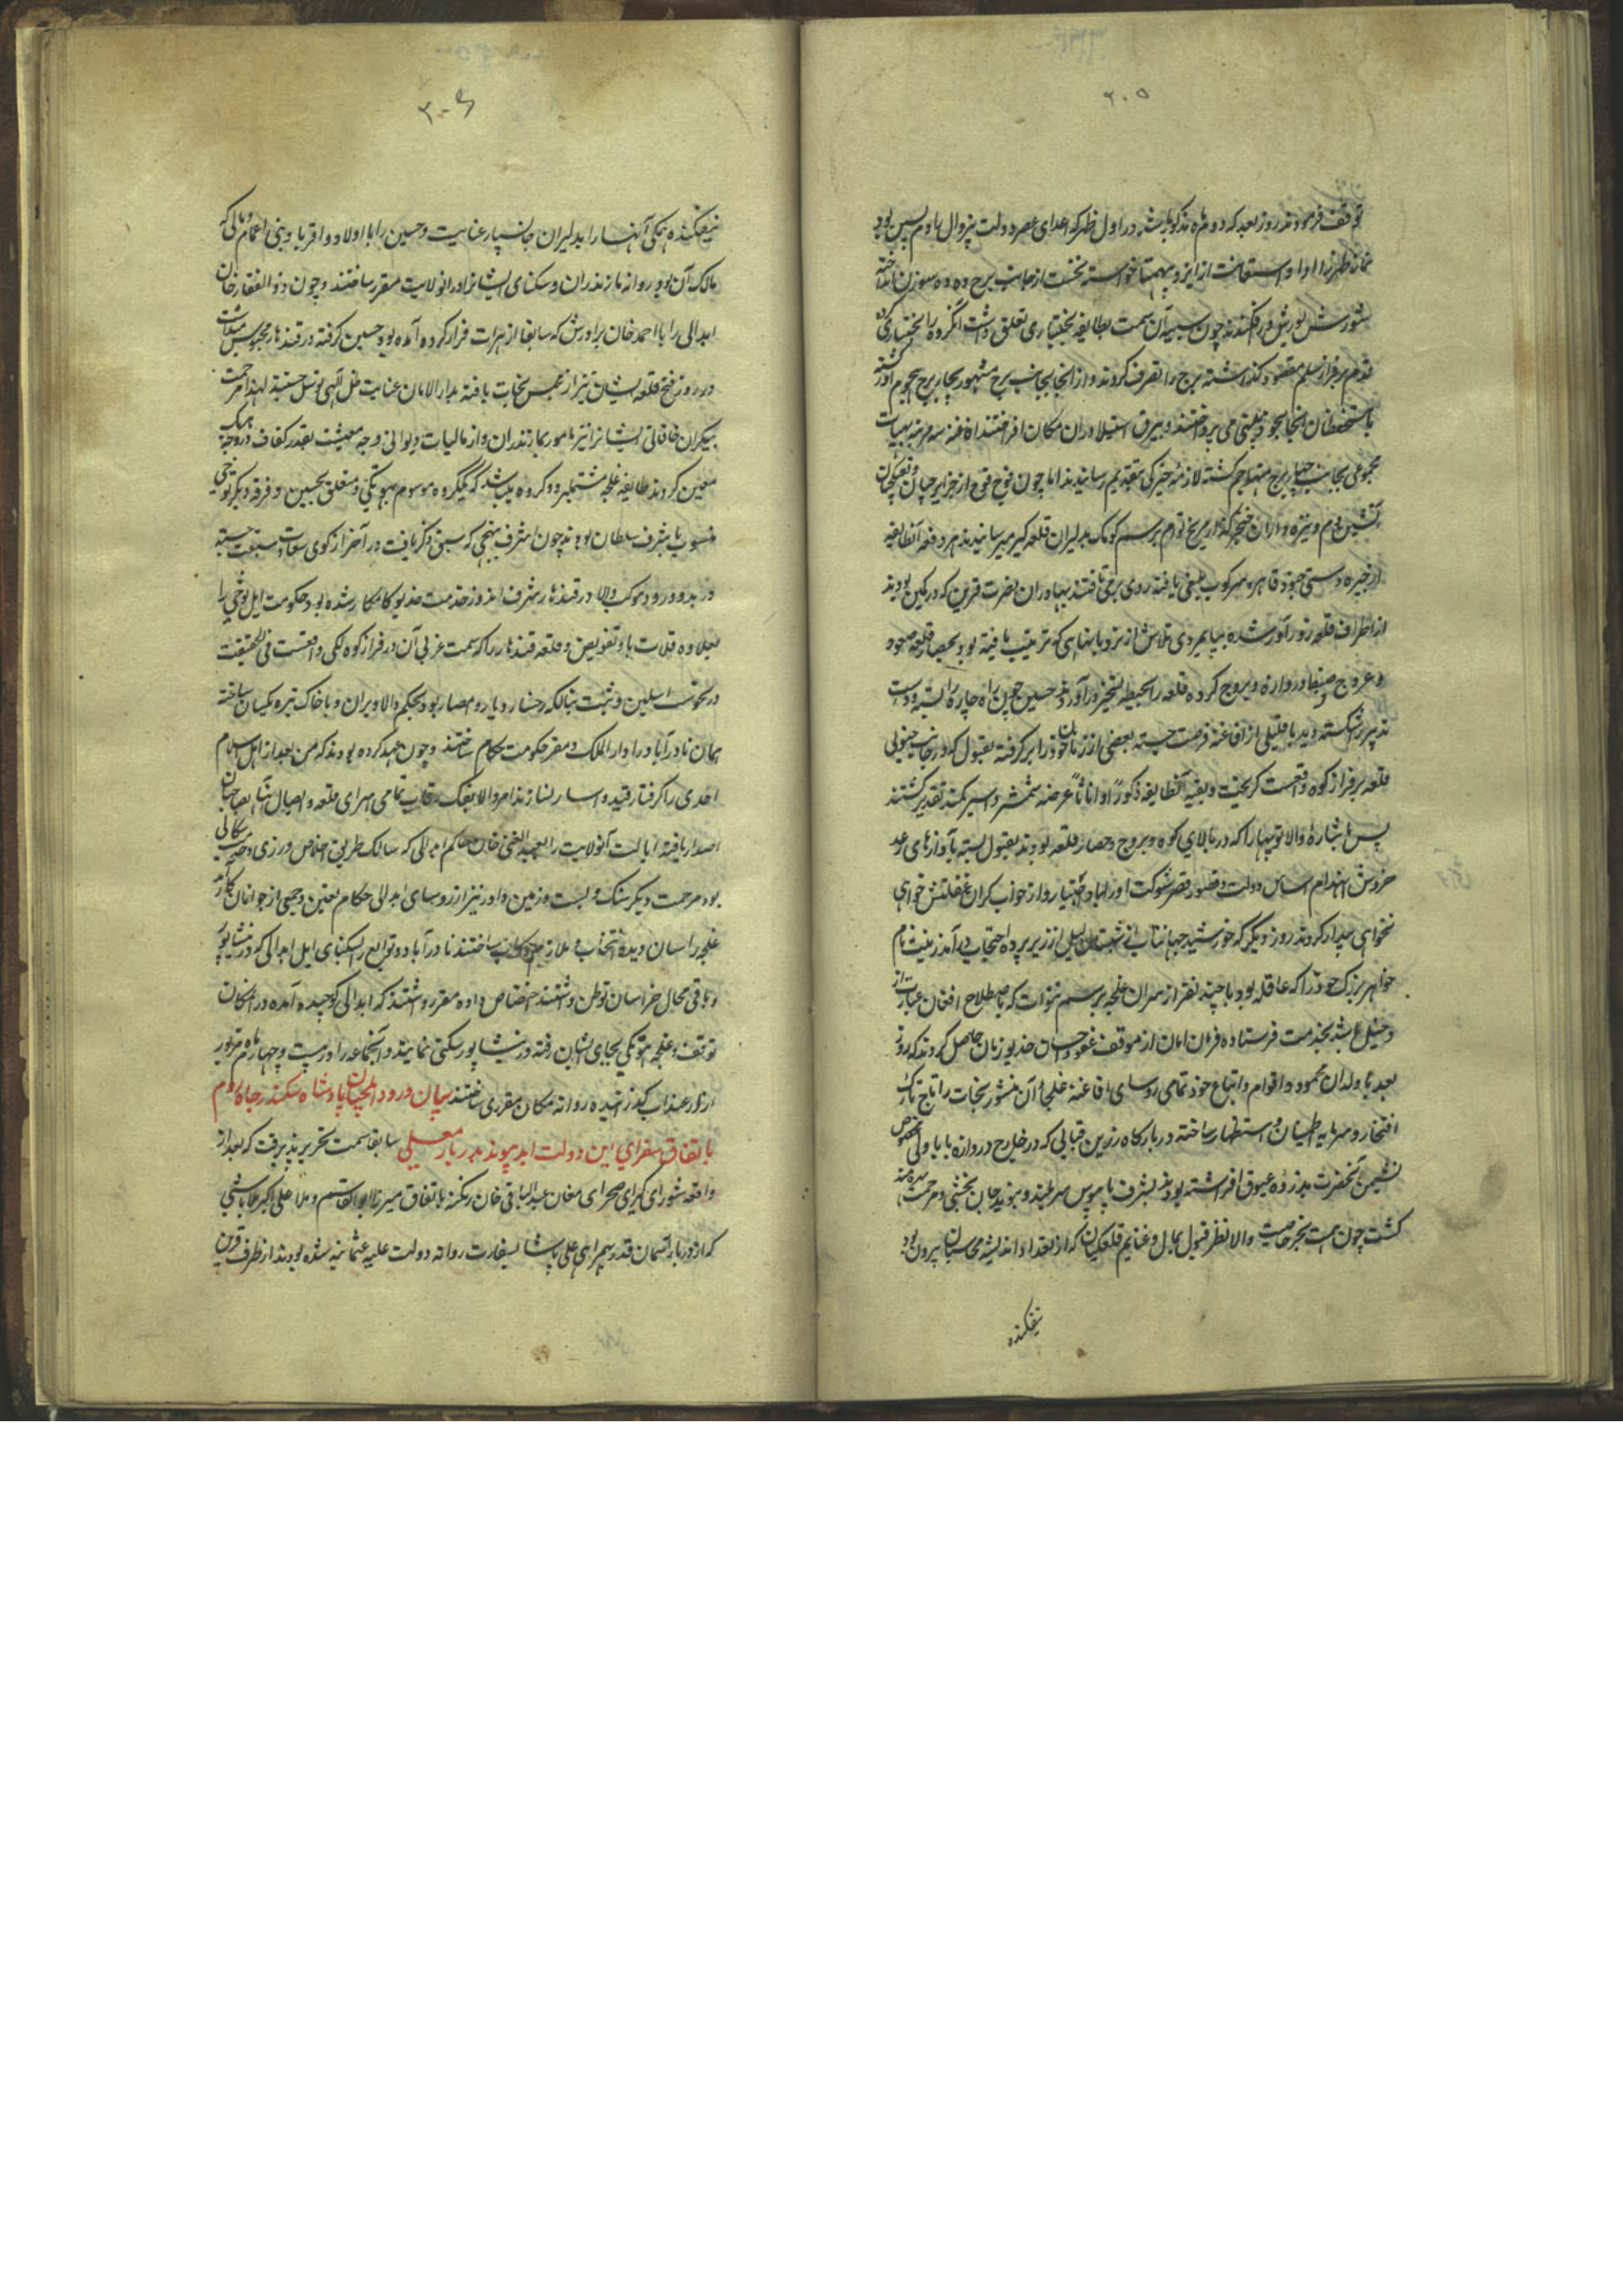 ۲۰۵
توقف فرمودند روز بعد که دوم ماه مذکور باشد در اول ظهر که اعدای عصر دولت بزوال یاوم پس بود
نماز ظهر را ادا و استعانت از ایزد بیهمتا خواسته نخست از جانب برج ده ده سورن انداخته
شورش یورش در افکندند چون سیبه آن سمت بطایفه بختیاری تعلق داشت انگروه را بختیاری کرده
قدم بر فراز سلم مقصود گذاشته برج را تصرف کردند و از انجا بجانب برج مشهور بچار برج هجوم آور گشته
با مستحفظان انجا بجو می پرداختند و بیرق استیلا در ان مکان افراختند افاغنه سه مرتبه بهیات
مجموعی بجانب چهار برج مهاجم گشته لازمه خیرگی بتقدیم رسانیدند اما چون فوج فوج از جزایرچیان و تفنگچیان
آتشین دم و نیزه داران خنجر گذار مریخ توام برسم کومک بدلیران قلعه گیر میرسانیدند هر دفعه آنطایفه
از خیره دستی جنود قاهره سرکوب بلیغی یافته روی برمی تافتند بهادران نصرت قرین که در کمین بودند
از اطراف قلعه زور آور شده بپایمردی تلاش از نردبانهایی که ترتیب یافته بود بحصار قلعه صعود
و عروج و ضبط دروازه و بروج کرده قلعه را بحیطه تسخیر در آوردند حسین چون راه چاره را بسته و دست
تدبیر را شکسته دید با قلیلی از افاغنه فرصت جسته بعضی از زنان خود را برگرفته بقیتول که در جانب جنوبی
قلعه بر فراز کوه واقعست گریخت و بقیه آنطایفه ذکوراً و اناثاً عرضه شمشیر و اسیر کمند تقدیر گشتند
پس باشاره والا توپها را که در بالای کوه و بروج و حصار قلعه بودند بقیتول بسته بآوازهای رعد
خروش انهدام اساس دولت و قصور قصر شوکت او را خواه و اختیار و از خواب گران غفلتش خواهی
نخواهی بیدار کردند روز دیگر که خورشید جهانتاب از شبستان لیل از زیر پرده احتجاب بر آمد زینت نام
خواهر بزرگ خود را که عاقله بود با چند نفر از سران غلجه برسم ننوات که باصطلاح افغان عبارت از
دخیل عِ باشد بخدمت فرستاده فرمان امان از موقف عفو و احسان خدیو زمان حاصل کردند که روز
بعد با ولدان محمود و اقوام و اتباع خود و تمامی روسای افاغنه غلجا آن منشور نجات را تاج تارک
افتخار و سرمایه اطمینان و استظهار ساخته در بارگاه زرین قبابی که در خارج دروازه بابا ولی مخصوص
نشیمن آنحضرت بذروه عیوق افراشته بودند بشرف پابوس سربلند و بنوید جان بخشی و مرحمت بهره مند
گشت چون همت بحر خاصیت والا نظر قبول بمال و غنایم قلعگیان که از تعداد اندیشه محاسبان بیرون بود
نیفکنده
۲۰۶
نیفکنده همگی آنها را بدلیران جانسپار عنایت و حسین را با اولاد و اقربا و بنی اعمام و مالی که
مالک آن بود روانه مازندران و سکنای ایشانرا در انولایت مقرر ساختند و چون ذوالفقار خان
ابدالی را با احمد خان برادرش که سابقا از هرات فرار کرده آمده بود حسین گرفته در قندهار محبوس میداشت
در روز فتح قلعه ایشان نیز از حبس نجات یافته بدار الامان عنایت ظل الهی توسل جستند لهذا مرحمت
بیکران خاقانی ایشانرا نیز مامور بمازندران و از مالیات دیوانی وجه معیشت بقدر کفاف در وجه یک
معین کردند طایفه غلجه مشتمل بر دو گروه میباشند که یک گروه موسوم بهوتکی و متعلق بحسین و فرقه دیگر توخی
منسوب باشرف سلطان بودند چون اشرف بنهجی که سبق ذکر یافت در آخر از کوی سعادت سبقت جسته
در بدو ورود موکب والا در قندهار بشرف اندوز خدمت خدیو کامکار شده بود حکومت ایل توخی را
بعلاوه قلات باو تفویض و قلعه قندهار را که سمت غربی آن در فراز کوه لکی واقعست فی الحقیقت
در نحوست اسلین و شبت بنالکه رخسار دیار و امصار بود بحکم والا ویران و با خاک تیره یکسان ساخته
همان نادرآباد را دار الملک و مقر حکومت حکام ساختند و چون عهد کرده بودند که من بعد از اهل اسلام
احدی را گرفتار قید و اسار نسازند امر والا بفک رقاب تمامی اسرای قلعه و اعیال شان بصاحبان
اصدار یافته ایالت آنولایت را بعبدالغنی خان حاکم ابدالی که سالک طریق اخلاص ورزی و
بود مرحمت و دیگر شنک و بست و زمین داور نیز از روسای ابدالی حکام تعیین و جمعی از جوانان کارآمد
غلجه را سان دیده انتخاب و ملازم رکاب ساختند نادرآباد و توابع را بسکنای ایل ابدالی که در نیشابور
و باقی محال خراسان توطن داشتند اختصاص داده مقرر داشتند که ابدالی کوچیده آمده در انمکان
توقف و غلجه هوتکی بجای ایشان رفته در نیشاپور سکنی نمایند و آنجماعه را در بیست و چهارم ماه مزبور
از رودخانه گذرانیده روانه مکان مقرری ساختند بیان ورود ایلچیان پادشاه سکندر جاه روم
باتفاق سفرای این دولت ابد پیوند بدربار معلی سابقا سمت تحریر پذیرفت که بعد از
واقعه شورای کبرای صحرای مغان عبدالباقی خان زنگنه باتفاق میرزا ابوالقاسم و ملا علی اکبر ملاباشی
که از دربار آسمان قدر بهمراهی علی پاشا بسفارت روانه دولت علیه عثمانیه شده بودند از طرف قرین